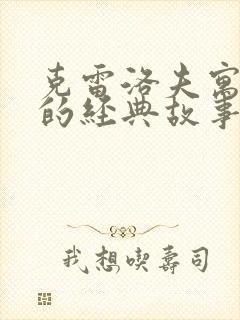 克雷洛夫寓
的經典故事
我想喫壽司